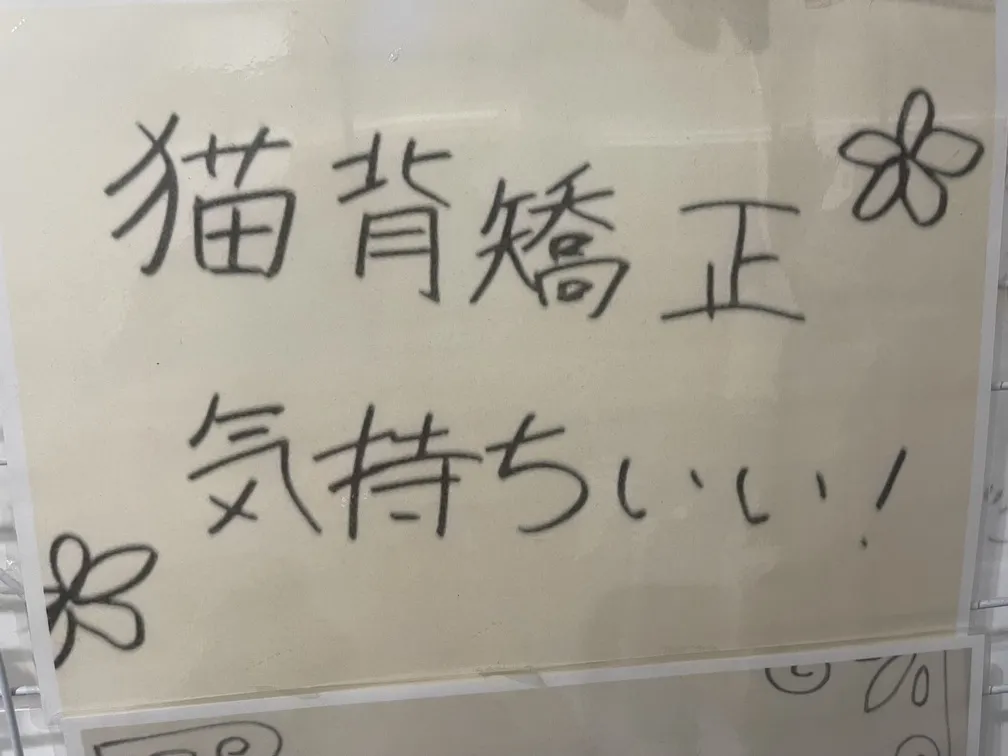 猫背矯正
気持ちいい!